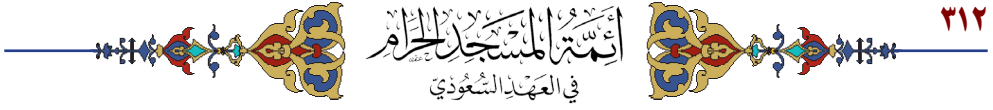 ٣١٢
أَئِمَّةُ المَسْجِدِ الحَرَامِ
في العَهْدِ السُّعُودِيِّ